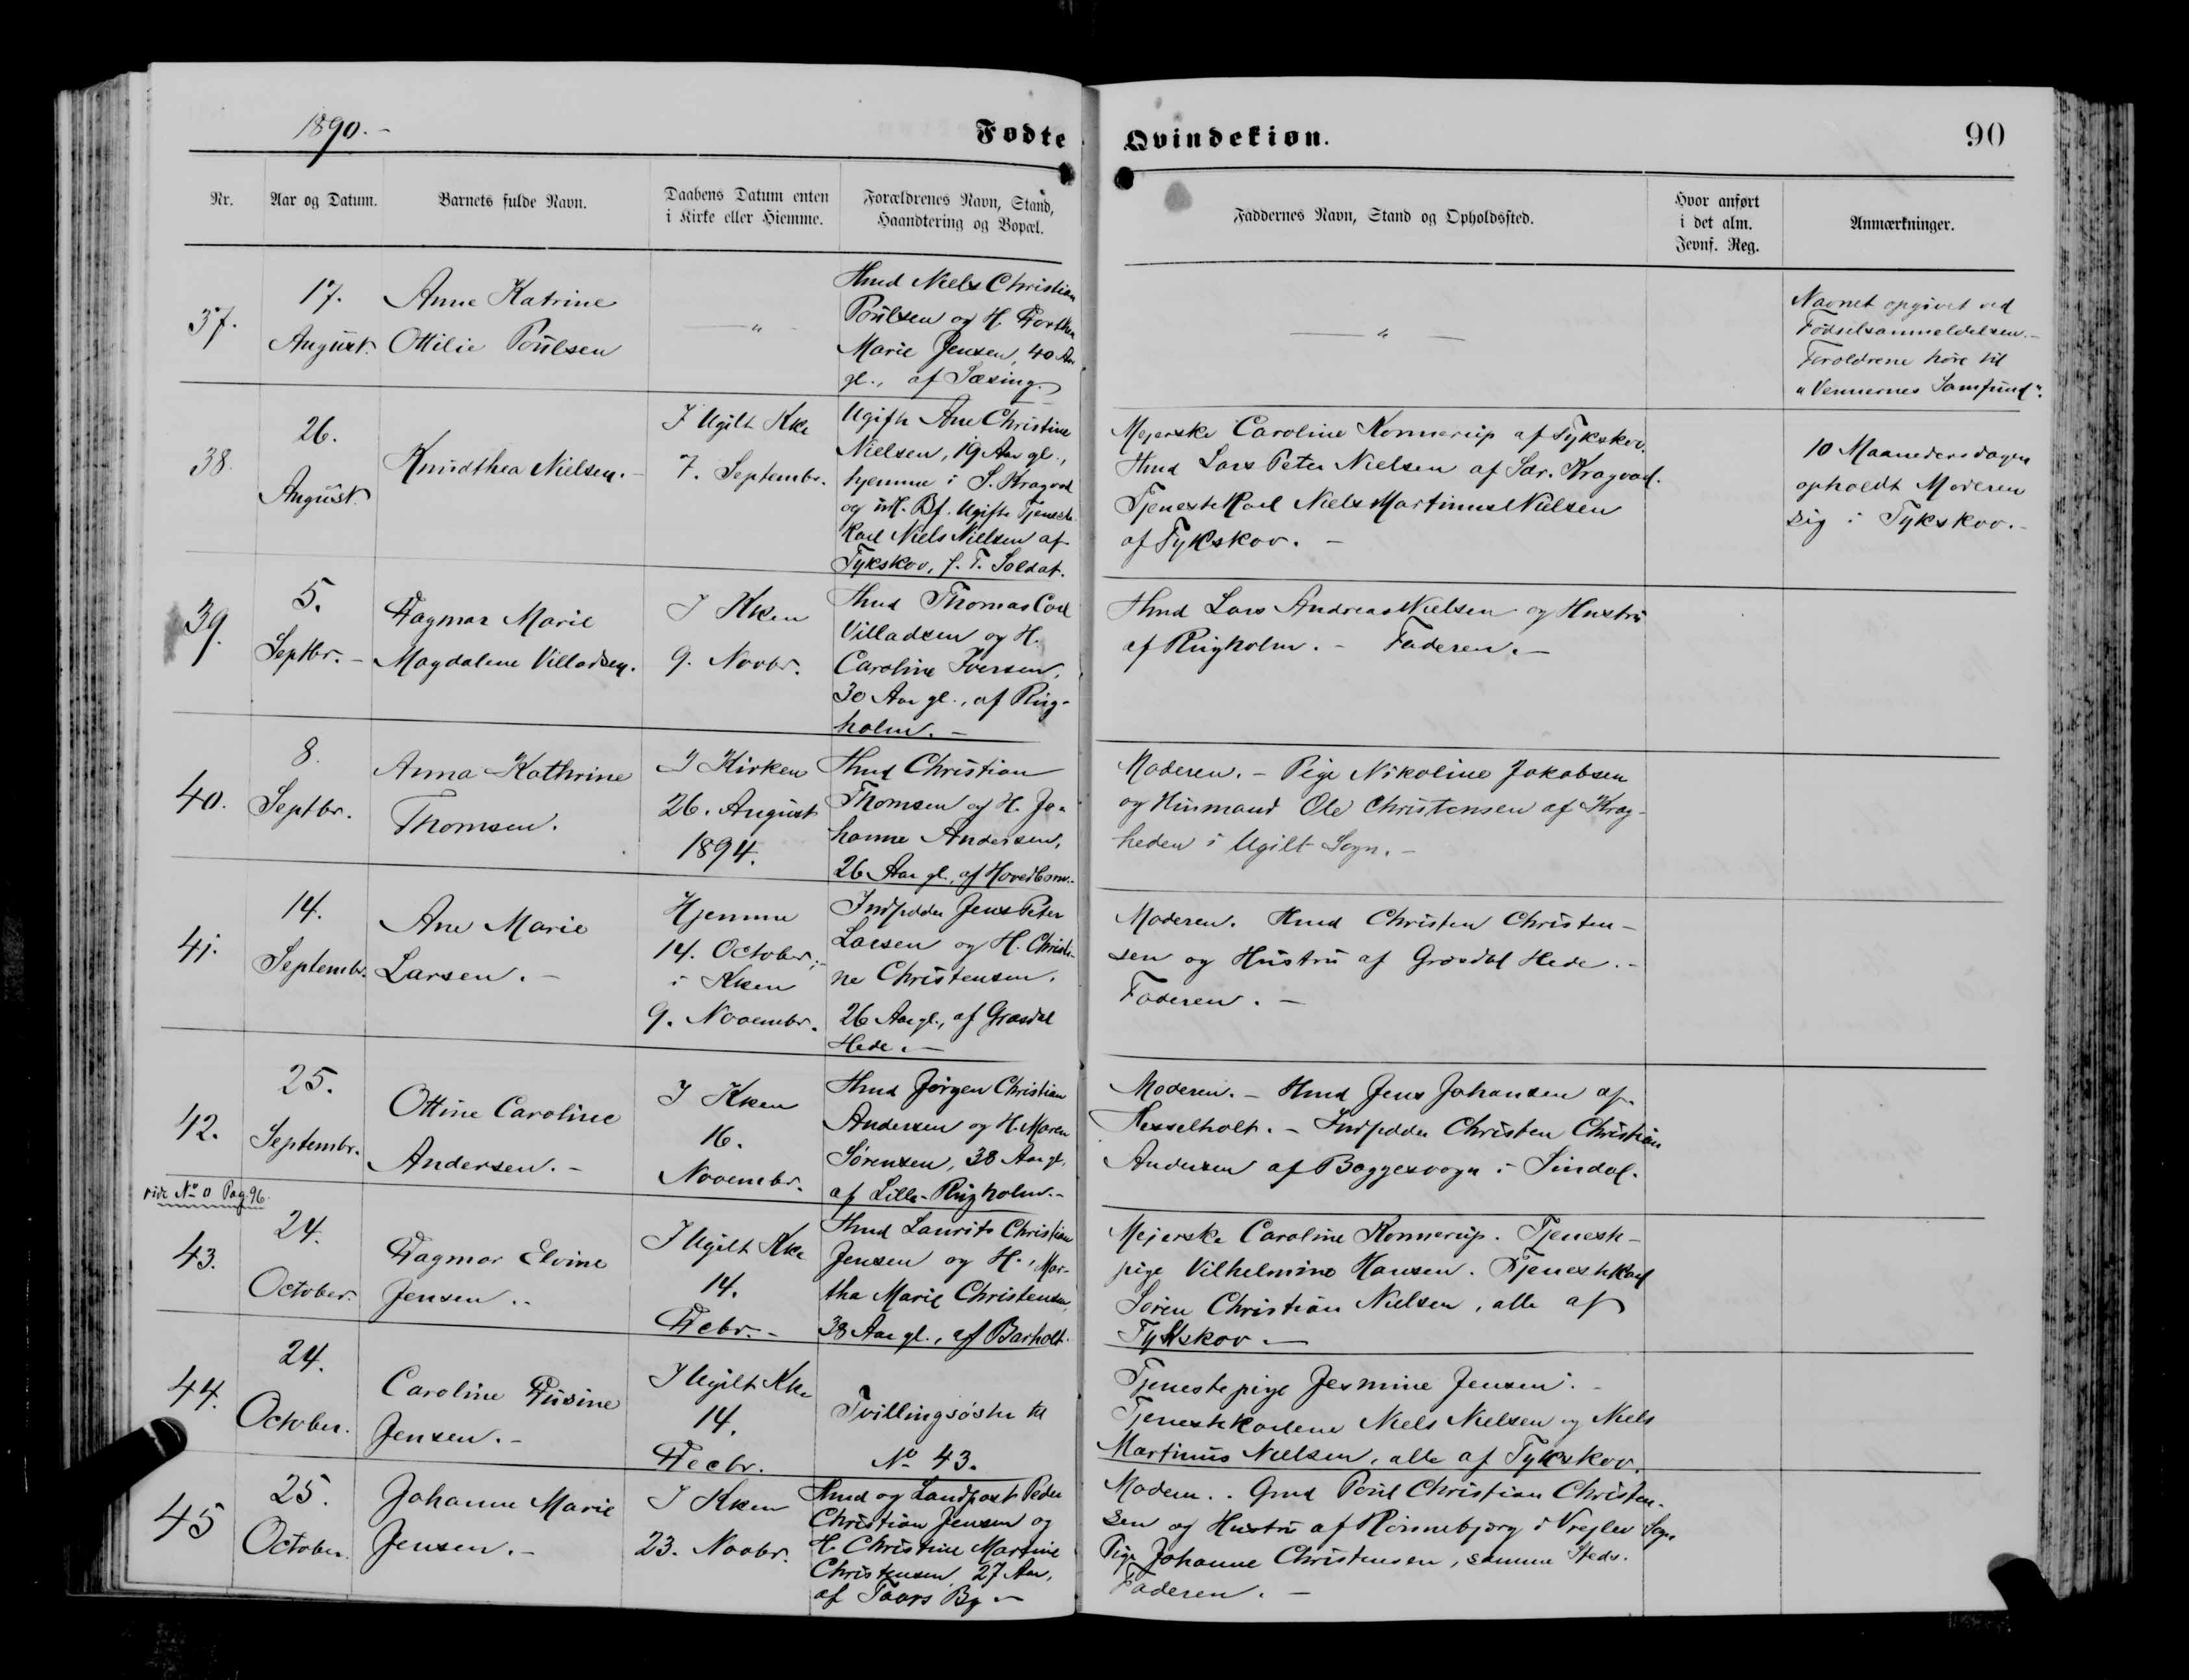 1890.-
Fødte
Qvindekiøn.
90
Nr.
Aar og Datum.
Barnets fulde Navn.
Daabens Datum enten
i Kirke eller Hiemme.
Forældrenes Navn, Stand,
Haandtering og Bopæl.
Faddernes Navn, Stand og Opholdssted.
Hvor anført
i det alm.
Jevnf. Reg.
Anmærkninger.
37.
17.
August.
Anne Katrine
Ottilie Poulsen
— " -
Hmd Niels Christian
Poulsen og H. Dorthea
Marie Jensen, 40 Aar
gl., af Sæsing.
— " —
Navnet opgivet ved
Fødselsanmeldelsen.-
Forældrene høre til
"Vennernes Samfund".
38.
26.
August.
Knudthea Nielsen.-
I Ugilt Kke
7. Septembr.
Ugifte Ane Christine
Nielsen, 19 Aar gl.,
hjemme i S. Kragvad
og udl. Bf. Ugifte Tjeneste
Karl Niels Nielsen af
Tykskov, f. T. Soldat.
Mejerske Caroline Konnerup af Tykskov.
Hmd Lars Peter Nielsen af Sdr. Kragvad.
Tjenestekarl Niels Martinus Nielsen
af Tykskov. -
10 Maanedersdagen
opholdt Moderen
sig i Tykskov.-
39.
5.
Septbr. -
Dagmar Marie
Magdalene Villadsen.
I Kken
9. Novbr.
Hmd Thomas Carl
Villadsen og H.
Caroline Iversen,
30 Aar gl., af Ring-
holm. -
Hmd Lars Andreas Nielsen og Hustru
af Ringholm. - Faderen. -
40.
8.
Septbr.
Anna Kathrine
Thomsen.
I Kirken
26. August
1894.
Hmd Christian
Thomsen og H. Jo-
hanne Andersen,
26 Aar gl., af Hvedbom.
Moderen. - Pige Nikoline Jakobsen
og Husmand Ole Christensen af Krag-
heden i Ugilt Sogn. -
41.
14.
Septembr.
Ane Marie
Larsen. -
Hjemme
14. October;
i Kken
9. Novembr.
Indsidder Jens Peter
Larsen og H. Christi-
ne Christensen,
26 Aar gl., af Græsdal
Hede. -
Moderen. Hmd Christen Christen-
sen og Hustru af Græsdal Hede. -
Faderen. -
42.
25.
Septembr.
Ottine Caroline
Andersen. -
I Kken
16.
Novembr.
Hmd Jørgen Christian
Andersen og H. Maren
Sørensen, 38 Aar gl.
af Lille-Ringholm.-
Moderen. - Hmd Jens Johansen af
Hesselholt. - Indsidder Christen Christian
Andersen af Baggesvogn i Sindal.
vide No 0 Pag. 96.
43.
24.
October.
Dagmar Elvine
Jensen..
I Ugilt Kke
14.
Decbr. -
Hmd Laurits Christian
Jensen og H., Mar-
tha Marie Christensen,
38 Aar gl., af Barholt.
Mejerske Caroline Konnerup. Tjeneste-
pige Vilhelmine Hansen. Tjenestekarl
Søren Christian Nielsen, alle af
Tykskov -
44.
24.
October.
Caroline Dusine
Jensen. -
I Ugilt Kke
14.
Decbr.
Tvillingsøster til
No 43.
Tjenestepige Jesmine Jensen. -
Tjenestekarlene Niels Nielsen og Niels
Martinus Nielsen, alle af Tykskov.
45
25.
October.
Johanne Marie
Jensen. -
I Kken
23. Novbr.
Hmd og Landpost Peder
Christian Jensen og
H. Christine Martine
Christensen, 27 Aar,
af Taars By -
Modern.. Gmd Poul Christian Christen-
sen og Hustru af Rønnebjerg i Vrejlev Sogn
Pige Johanne Christensen, samme Steds.
Faderen. -